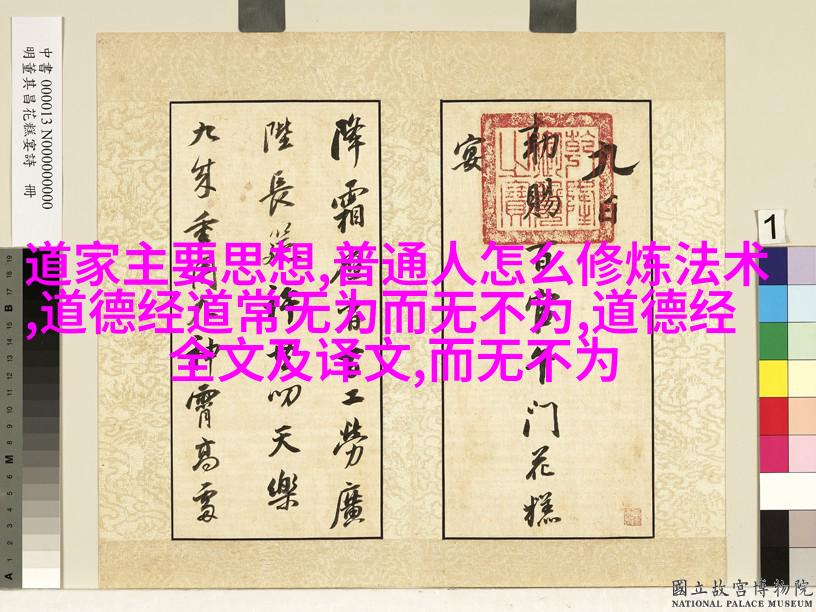 道家主要思想,普通人怎么修炼法术
,道德经道常无为而无不为,道德经
全文及译文,而无不为
中書 000013 N000000000
明董其昌花糕宴詩 冊
九日
勅賜百官午門花糕
宴
乾隆御覽之寶
降霜 工勞廣
陛長筵許 叨天樂
九成重 神霄高
1
國立故宮博物院
NATIONAL PALACE MUSEUM